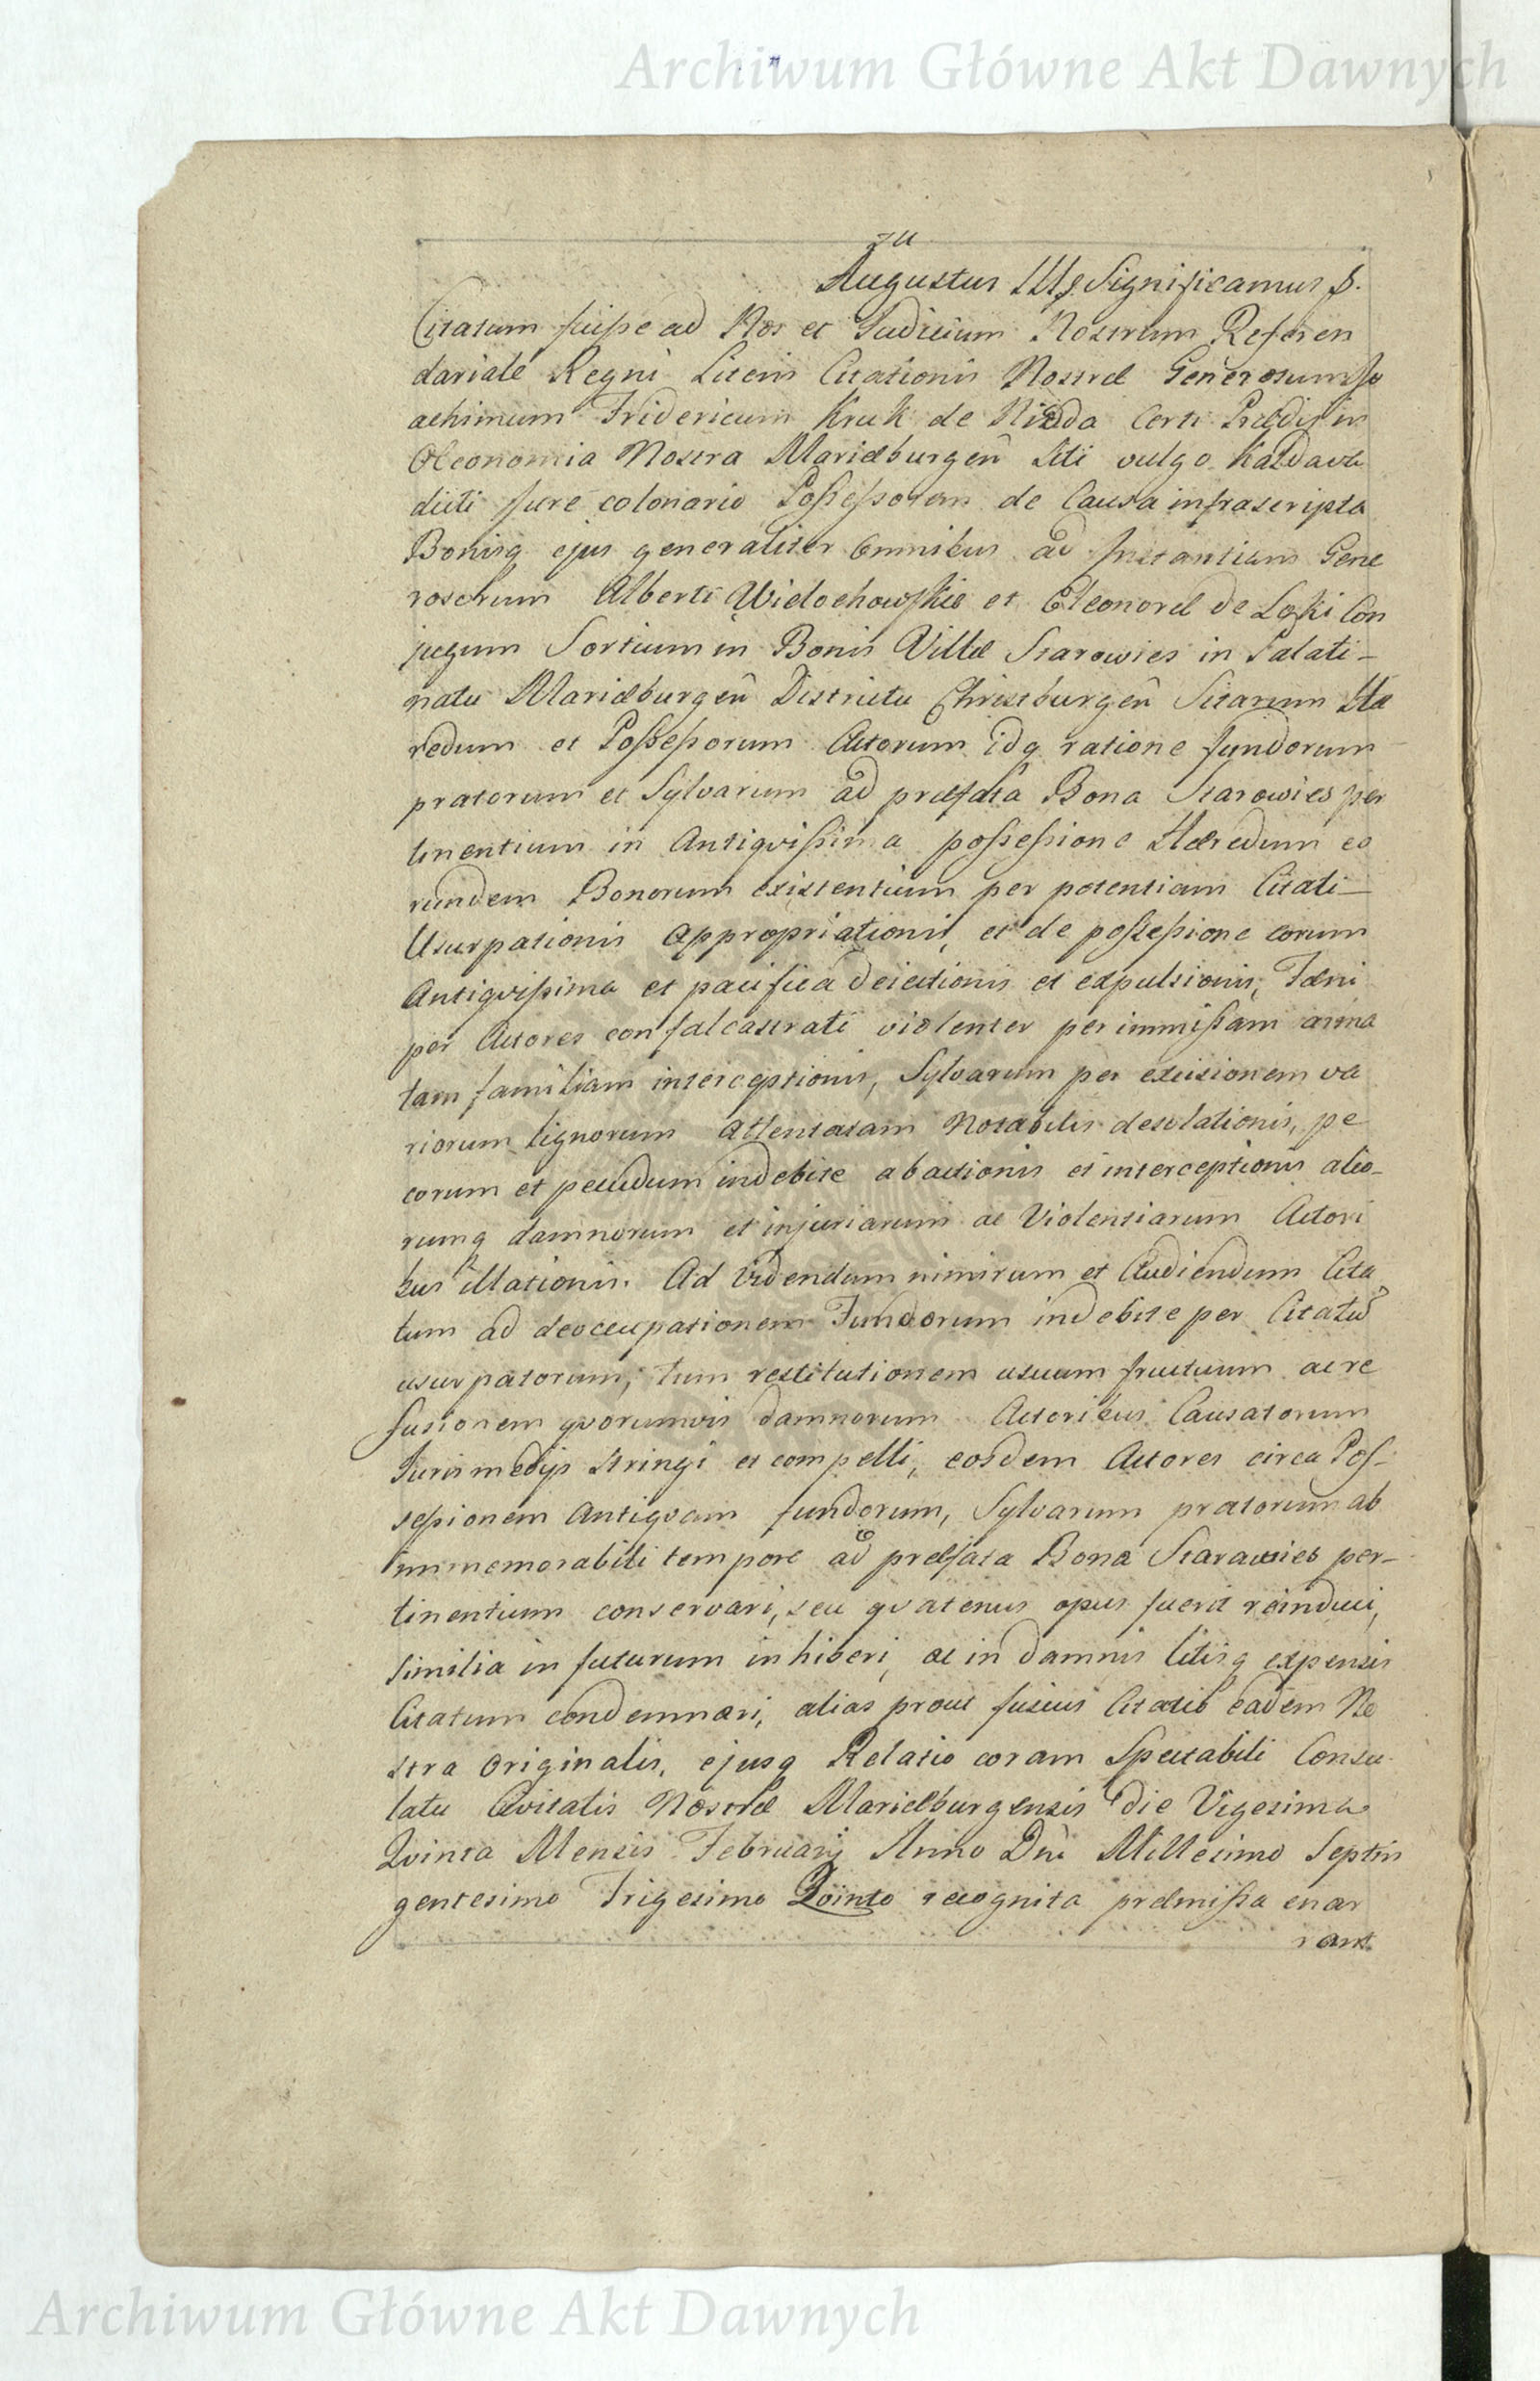 Archiwum Główne Akt Dawnych
Augustus III Significamus
Citatum fuisse ad Nos et Judicium Nostrum Referen
dariale Regni Literis Citationis Nostræ Generosum Jo
achimum Fridericum Kruk de Nidda Certi Prædij in
Oeconomia Nostra Mariæburgeñ Siti vulgo Kaldawa
dicti Jure colonario Possessorem de Causa infrascripta
Bonisq ejus generaliter Omnibus ad Instantiam Gene
rosorum Alberti Widochowskie et Eleonoræ de Loski Con
jugum Sortium in Bonis Villæ Starowies in Palati-
natu Mariæburgeñ Districtu Christburgeñ Sitarum Hæ
redum et Possessorum Actorum idq ratione fundorum
pratorum et Sylvarum ad præfata Bona Starowies per
tinentium in Antiqvissima possessione Hæredum eo
rundem Bonorum existentium per potentiam Citati
Usurpationis Appropriationis, et de possessione eorum
Antiqvissima et pacifica deiectionis et expulsionis, Fæni
per Actores confalcastrati violenter per immissam arma
tam familiam interceptionis, Sylvarum per excisionem va
riorum lignorum Attentatam Notabilis desolationis, pe
corum et pecudum indebite abactionis et interceptionis alio-
rumq damnorum et injuriarum ac Violentiarum Actori
bus illationis. Ad Videndum nimirum et Audiendum Cita
tum ad deoccupationem Fundorum indebite per Citatũ
usurpatorum, tum restitutionem usuum fructuum ac re
fusionem qvorumvis damnorum Actoribus Causatorum
Juris medijs stringi et compelli, eosdem Actores circa Pos-
sessionem Antiqvam fundorum, Sylvarum pratorum ab
immemorabili tempore ad præfata Bona Starawies per-
tinentium conservari, seu qvatenus opus fuerit reinduci,
similia in futurum inhiberi, ac in damnis litisq expensis
Citatum condemnari, alias prout fusius Citatio eadem No
stra Originalis, ejusq Relatio coram Spectabili Consu
latu Civitatis Nostræ Mariæburgensis die Vigesima
Qvinta Mensis Februarij Anno Dñi Millesimo Septin
gentesimo Trigesimo Qvinto recognita præmissa enar
rant
Archiwum Główne Akt Dawnych